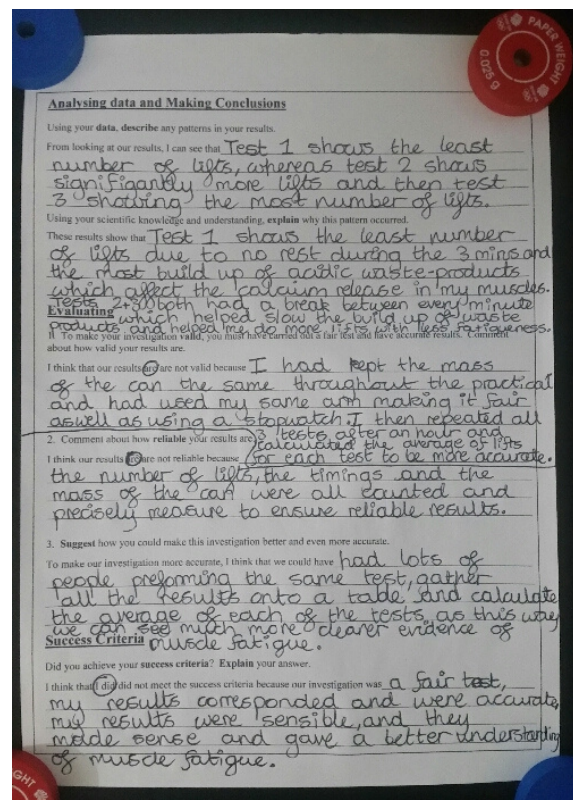 PAPER WEIGHT
0025g
Analysing data and Making Conclusions
Using your data, describe any patterns in your results.
From looking at our results, I can see that Test 1 shows the least
number of lifts, whereas test 2 shows
signifigantly more lifts and then test
3 showing the most number of lifts.
Using your scientific knowledge and understanding, explain why this pattern occurred.
These results show that Test 1 shows the least number
of lifts due to no rest during the 3 mins and
the most build up of acidic waste-products
which affect the calcium release in my muscles.
Tests 2+3 both had a break between every minute
Evaluating which helped slow the build up of waste
products and helped me do more lifts with less fatigueness.
1. To make your investigation valid, you must have carried out a fair test and have accurate results. Comment
about how valid your results are.
I think that our results are/are not valid because I had kept the mass
of the can the same throughout the practical
and had used my same arm making it fair
aswell as using a stopwatch. I then repeated all
3 tests after an hour and
calculated the average of lifts
for each test to be more accurate.
2. Comment about how reliable your results are
I think our results are/are not reliable because
the number of lifts, the timings and the
mass of the can were all counted and
precisely measure to ensure reliable results.
3. Suggest how you could make this investigation better and even more accurate.
To make our investigation more accurate, I think that we could have had lots of
people preforming the same test, gather
all the results onto a table and calculate
the average of each of the tests as this way
we can see much more clearer evidence of
Success Criteria muscle fatigue.
Did you achieve your success criteria? Explain your answer.
I think that I did/did not meet the success criteria because our investigation was a fair test,
my results corresponded and were accurate,
my results were sensible, and they
made sense and gave a better understanding
of muscle fatigue.
GHT